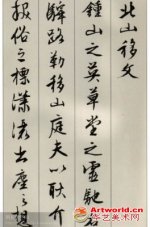 北山移文
鍾山之英草堂之靈馳烟
驛路勒移山庭夫以耿介
拔俗之標瀟洒出塵之想
Artworld.cn
华艺美术网